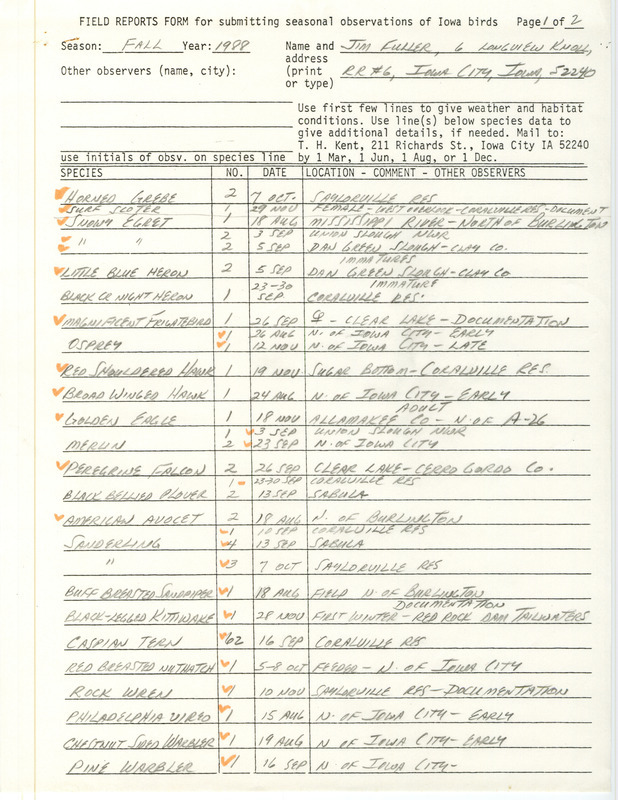 FIELD REPORTS FORM for submitting seasonal observations of Iowa birds Page 1 of 2
Season: FALL Year: 1988 Name and JIM FULLER, 6 LONGVIEW KNOLL,
address
Other observers (name, city): (print RR#6, IOWA CITY, IOWA, 52240
or type)
Use first few lines to give weather and habitat
conditions. Use line(s) below species data to
give additional details, if needed. Mail to:
T. H. Kent, 211 Richards St., Iowa City IA 52240
use initials of obsv. on species line by 1 Mar, 1 Jun, 1 Aug, or 1 Dec.
SPECIES NO. DATE LOCATION - COMMENT - OTHER OBSERVERS
HORNED GREBE 2 7 OCT. SAYLORVILLE RES
SURF SCOTER 1 29 NOV FEMALE - WEST OVERLOOK - CORALVILLE RES - DOCUMENT
SNOWY EGRET 1 18 AUG MISSISSIPPI RIVER - NORTH OF BURLINGTON
" " 2 3 SEP UNION SLOUGH NWR
2 5 SEP DAN GREEN SLOUGH - CLAY CO.
IMMATURES
LITTLE BLUE HERON 2 5 SEP DAN GREEN SLOUGH - CLAY CO
IMMATURE
BLACK CR NIGHT HERON 1 23-30 SEP CORALVILLE RES.
MAGNIFICENT FRIGATEBIRD 1 26 SEP ♀ - CLEAR LAKE - DOCUMENTATION
OSPREY 1 26 AUG N. OF IOWA CITY - EARLY
1 12 NOV N. OF IOWA CITY - LATE
RED SHOULDERED HAWK 1 19 NOV SUGAR BOTTOM - CORALVILLE RES.
BROAD WINGED HAWK 1 24 AUG N. OF IOWA CITY - EARLY
ADULT
GOLDEN EAGLE 1 18 NOV ALLAMAKEE CO - N. OF A-26
1 3 SEP UNION SLOUGH NWR
MERLIN 2 23 SEP N. OF IOWA CITY
PEREGRINE FALCON 2 26 SEP CLEAR LAKE - CERRO GORDO CO.
1 23-30 SEP CORALVILLE RES
BLACK BELLIED PLOVER 2 13 SEP SABULA
AMERICAN AVOCET 2 18 AUG N. OF BURLINGTON
1 10 SEP CORALVILLE RES
SANDERLING 4 13 SEP SABULA
" 3 7 OCT SAYLORVILLE RES
BUFF BREASTED SANDPIPER 1 18 AUG FIELD N. OF BURLINGTON
DOCUMENTATION
BLACK-LEGGED KITTIWAKE 1 28 NOV FIRST WINTER - RED ROCK DAM TAILWATERS
CASPIAN TERN 62 16 SEP CORALVILLE RES
RED BREASTED NUTHATCH 1 5-8 OCT FEEDER - N. OF IOWA CITY
ROCK WREN 1 10 NOV SAYLORVILLE RES - DOCUMENTATION
PHILADELPHIA VIREO 1 15 AUG N. OF IOWA CITY - EARLY
CHESTNUT SIDED WARBLER 1 19 AUG N OF IOWA CITY - EARLY
PINE WARBLER 1 16 SEP N OF IOWA CITY -